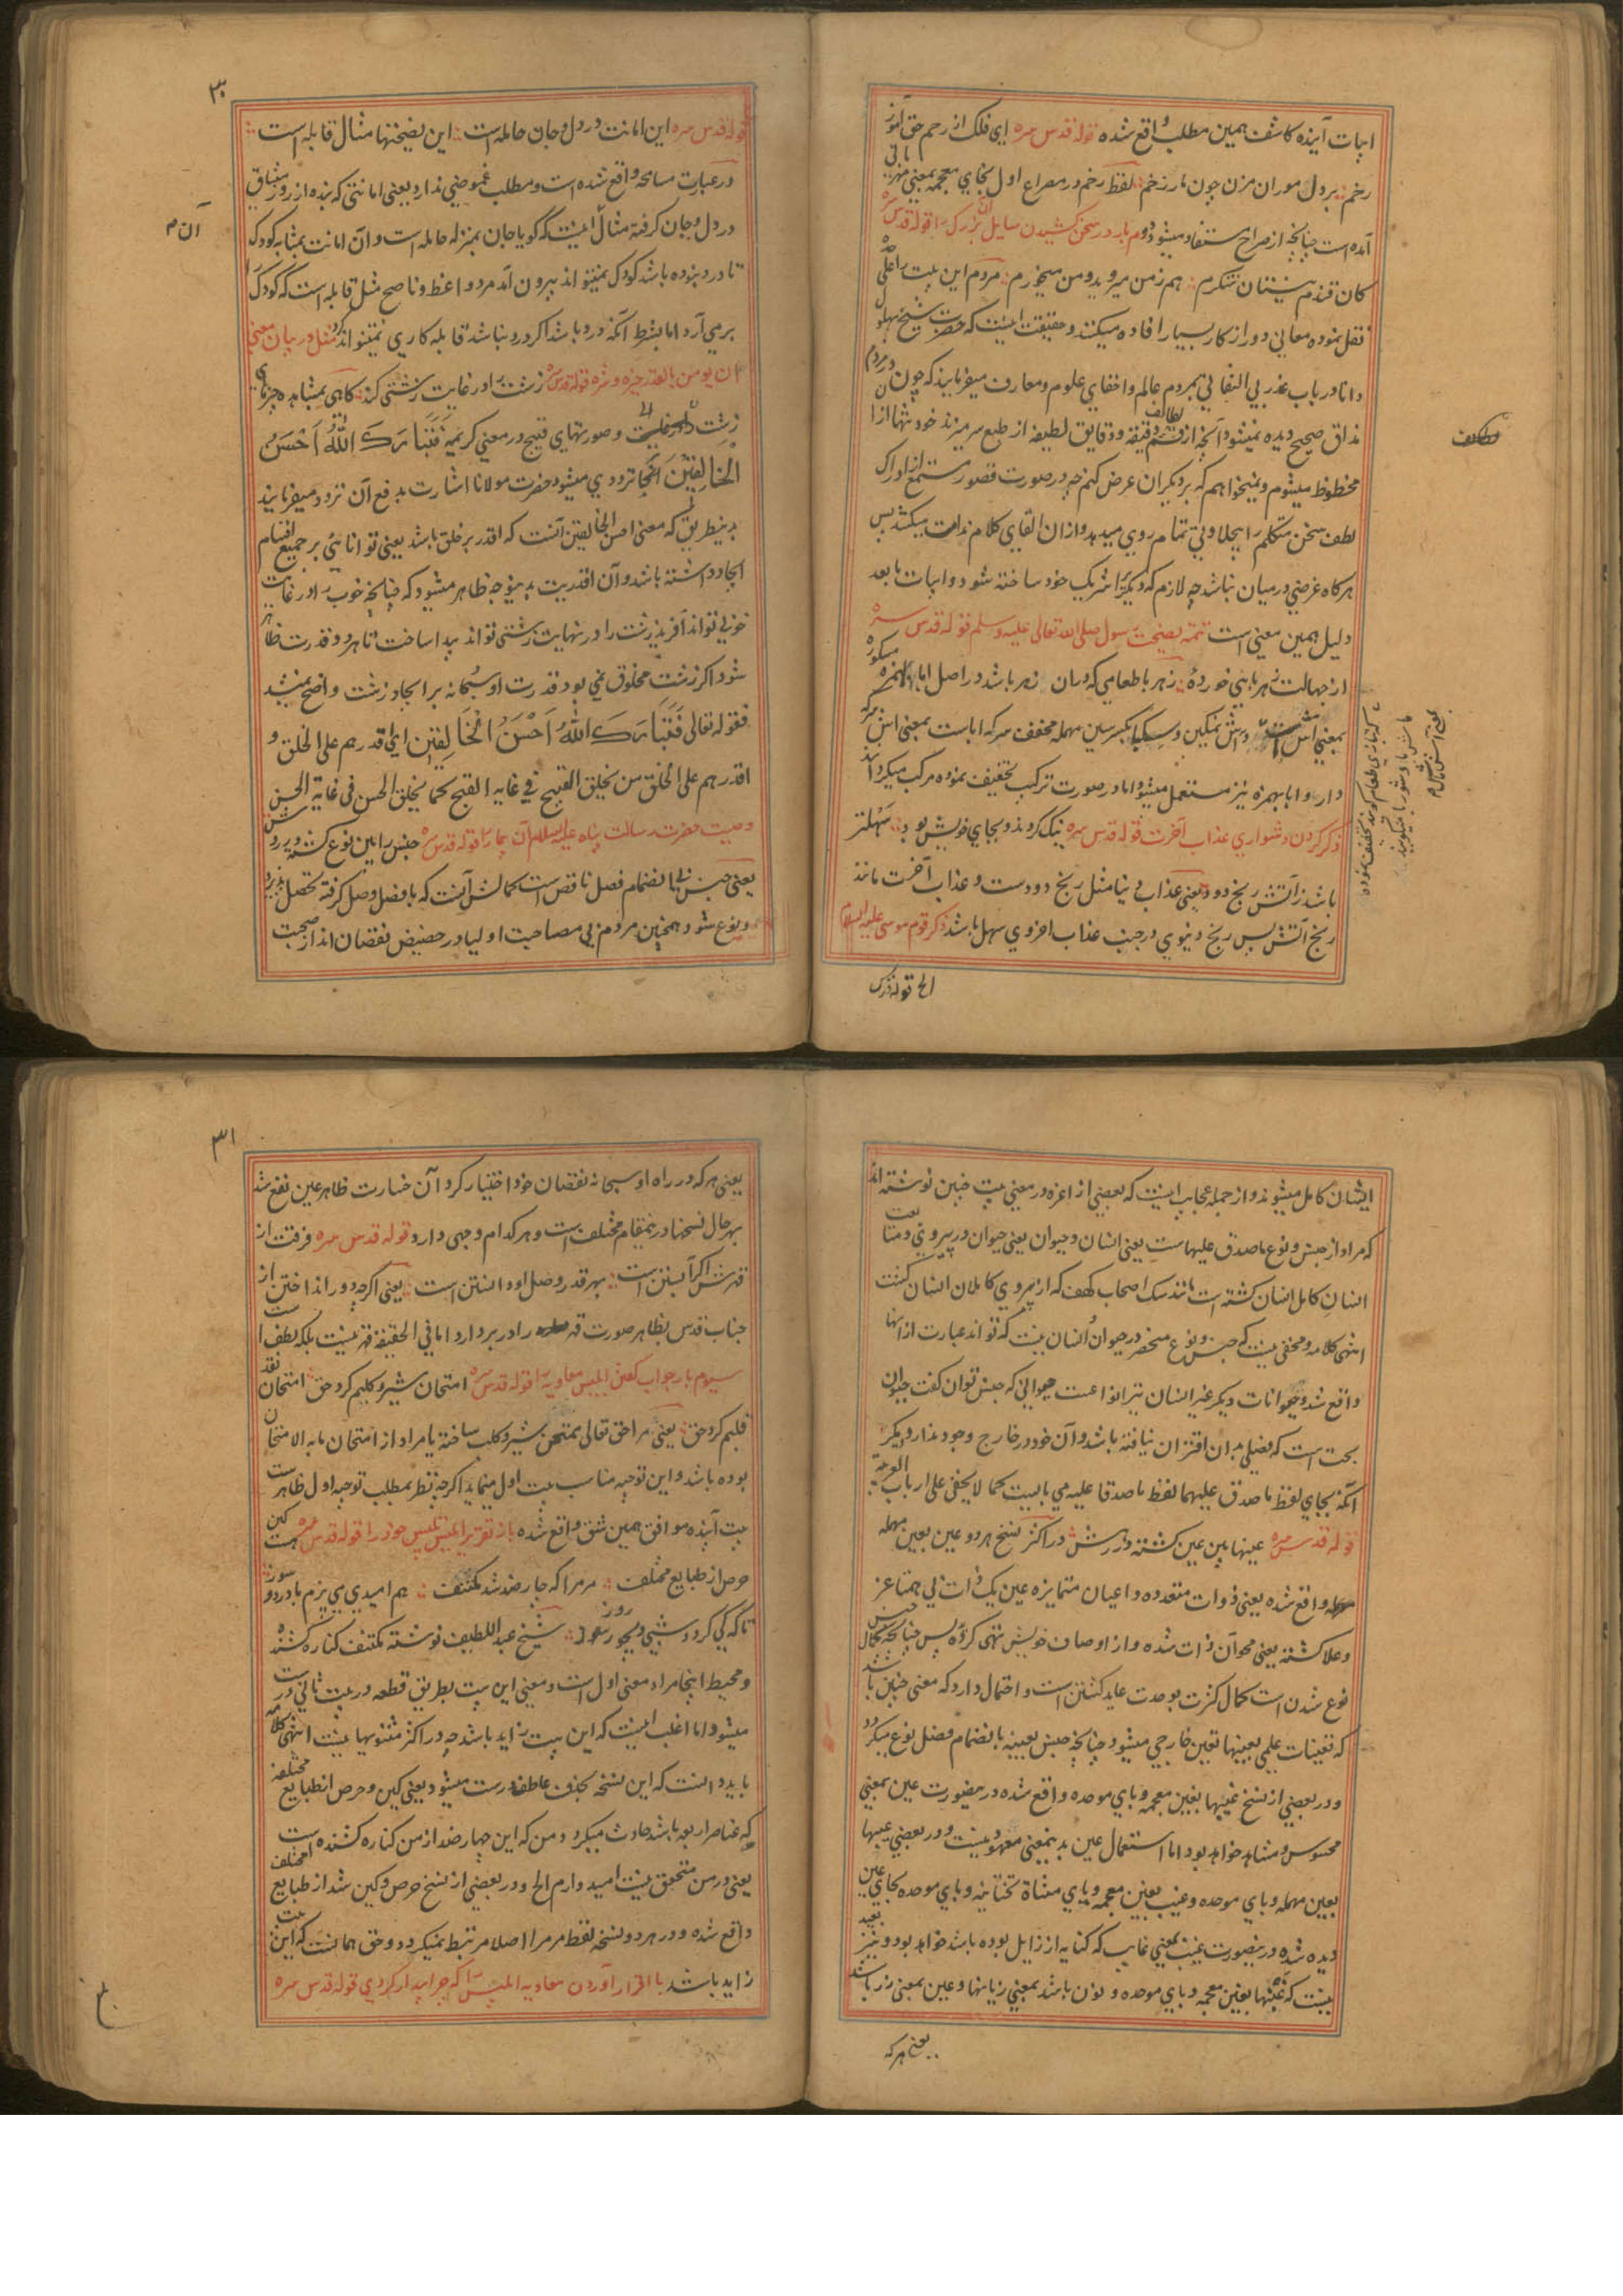 ابیات آینده کاشف همین مطلب واقع شده قوله قدس سره ای فلک از رحم حق آموز
رحم بر دل موران مزن چون مار زخم لفظ رخم در مصراع اول بجای معجمه بمعنی مهربانی
آمده است چنانچه از صراح مستفاد میشود دوم بار در سخن کشیدن سایل آن بزرک را قوله قدس سره
کان قندم نیستان شکرم هم زمن میروید و من میخورم مردم این بیت را علی
نقل نموده معانی دور از کار بسیار افاده میکنند و حقیقت اینست که حضرت شیخ بهلول
دانا در باب عذر بی التفاتی بمردم عالم و اخفای علوم و معارف میفرمایند که چون در مردم
مذاق صحیح دیده نمیشود آنچه از قسم دقیقه و دقایق لطیفه از طبع سر میزند خود تنها از آن
محظوظ میشوم و نمیخواهم که بر دیکران عرض کنم چه در صورت قصور مستمع از ادراک
لطف سخن متکلم را بیحلاوتی تمام روی میدهد و از ان القای کلام ندامت میکشد پس
هرکاه غرضی درمیان نباشد چه لازم که دیکری را شریک خود ساخته شود و ابیات مابعد
دلیل همین معنی است تتمه نصیحت رسول صلی الله تعالی علیه وسلم قوله قدس سره
از جهالت زهربایی خورده زهربا طعامی که دران زهر باشد در اصل ابا بالهمزه
بمعنی آش است و آش نمکین و سکبا بکسر سین مهمله مخفف سرکه ابا است بمعنی آش سرکه
دار و ابا بهمزه نیز مستعمل میشود اما در صورت ترکیب تخفیف نموده مرکب میکردانند
ذکر کردن دشواری عذاب آخرت قوله قدس سره نیک کردند و بجای خویش بود سهلتر
باشد ز آتش رنج دود یعنی عذاب دنیا مثل رنج دود است و عذاب آخرت مانند
رنج آتش پس رنج دنیوی در جنب عذاب اخروی سهل باشد ذکر قوم موسی علیه السلام
الخ قوله قدس
۳۰
قوله قدس سره این امانت در دل و جان حامله است این نصیحتها مثال قابله است
در عبارت مسامحه واقع شده است و مطلب غموضی ندارد یعنی امانتی که بنده از روز میثاق
در دل و جان کرفته مثال اینست که کویا جان بمنزله حامله است و آن امانت بمثابه کودک
تا درد نبوده باشد کودک نمیتواند بیرون آمد مرد واعظ و ناصح مثل قابله است که کودک را
بر می آرد اما بشرط آنکه درد باشد اکر درد نباشد قابله کاری نمیتواند کرد مثل در بیان معنی
ان یومن بالقدر خیره و شره قوله قدس سره زشت را در غایت زشتی کند کاهی بمشاهده چیزهای
زشت و صورتهای قبیح در معنی کریمه فَتَبَارَكَ اللَّهُ أَحْسَنُ
الْخَالِقِينَ انجا ترددی میشود حضرت مولانا اشارت بدفع آن تردد میفرمایند
بدینطریق که معنی احسن الخالقین آنست که اقدر بر خلق باشد یعنی توانایی بر جمیع اقسام
ایجاد داشته باشد و آن اقدریت بدینوجه ظاهر میشود که چنانچه خوب را در غایت
خوبی تواند آفرید زشت را در نهایت زشتی تواند پیدا ساخت تا هر دو قدرت ظاهر
شود اکر زشت مخلوق نمی بود قدرت او سبحانه بر ایجاد زشت واضح نمیشد
فقوله تعالی فَتَبَارَكَ اللَّهُ أَحْسَنُ الْخَالِقِينَ ای اقدرهم علی الخلق و
اقدرهم علی الخلق من یخلق القبیح فی غایه القبح کما یخلق الحسن فی غایة الحسن
وصیت حضرت رسالت پناه علیه السلام آن بیمار را قوله قدس سره جنس را بین نوع کشته در روش
یعنی جنس بی انضمام فصل ناقص است کمالش آنست که با فصل وصل کرفته تحصل پذیرد
و نوع شود همچنین مردم بی مصاحبت اولیا در حضیض نقصان اند از صحبت
ایشان کامل میشوند و از جمله عجایب اینست که بعضی از اعزه در معنی بیت چنین نوشته اند
که مراد از جنس و نوع ماصدق علیهاست یعنی انسان و حیوان یعنی حیوان در پیروی و متابعت
انسان کامل انسان کشته است مانند سک اصحاب کهف که از پیروی کاملان انسان کشت
انتهی کلامه و مخفی نیست که جنس و نوع منحصر در حیوان و انسان نیست که تواند عبارت از انها
واقع شد و حیوانات دیکر غیر انسان نیز انواعست حیوانی که جنس توان کفت حیوان
بحت است که فصلی بدان اقتران نیافته باشد و آن خود در خارج وجود ندارد دیکر
آنکه بجای لفظ ماصدق علیهما لفظ ماصدقا علیه می بایست کما لا یخفی علی ارباب العربیة
قوله قدس سره عینها بین عین کشته در روش در اکثر نسخ هر دو عین بعین مهمله
واقع شده یعنی ذوات متعدده و اعیان متمایزه عین یک ذات بی همتا عز
وعلا کشته یعنی محو آن ذات شده و از اوصاف خویش تهی کردیده پس چنانچه کمال جنس
نوع شدن است کمال کثرت بوحدت عاید کشتن است و احتمال دارد که معنی چنین باشد
که تعینات علمی بعینها تعین خارجی میشود چنانچه جنس بعینه بانضمام فصل نوع میکردد
و در بعضی از نسخ غیبها بغین معجمه و بای موحده واقع شده درینصورت عین بمعنی
محسوس و مشاهد خواهد بود اما استعمال عین بدینمعنی معهود نیست و در بعضی عیبها
بعین مهمله و بای موحده و غیب بغین معجمه و یای مثناة تحتانیه و بای موحده بجای عین
دیده شده درینصورت غیب بمعنی غایب که کنایه از زایل بوده باشد خواهد بود و نیز بعید
نیست که غبنها بغین معجمه و بای موحده و نون باشد بمعنی زیانها و عین بمعنی زر باشد
یعنی هرکه
۳۱
یعنی هرکه در راه او سبحانه نقصان خود اختیار کرد آن خسارت ظاهر عین نفع شد
بهرحال نسخها درینمقام مختلف است و هر کدام وجهی دارد قوله قدس سره فرقت از
قهرش اکر آبستن است بهر قدر وصل او دانستن است یعنی اکرچه دور انداختن از
جناب قدس بظاهر صورت قهر را در بر دارد اما فی الحقیقة قهر نیست بلکه لطف است
سیوم بار جواب کفتن ابلیس معاویه را قوله قدس سره امتحان شیر و کلبم کرد حق امتحان نقد
قلبم کرد حق یعنی مرا حق تعالی ممتحن شیر و کلب ساخته یا مراد از امتحان مابه الامتحان
بوده باشد و این توجیه مناسب بیت اول مینماید اکرچه بنظر بمطلب توجیه اول ظاهرست
بیت آینده موافق همین شق واقع شده باز تقریر ابلیس تلبیس خود را قوله قدس سره هست کین
حرص از طبایع مختلف مر مرا که چار ضد شد مکتنف هم امیدی می پزم با درد و سوز
تا که کی کردد شب دیجور روز شیخ عبداللطیف نوشته مکتنف کناره کشنده
و محیط اینجا مراد معنی اول است و معنی این بیت بطریق قطعه در بیت ثانی درست
میشود اما اغلب اینست که این بیت زاید باشد چه در اکثر مثنویها نیست انتهی کلامه
باید دانست که این نسخه بحذف عاطف درست میشود یعنی کین و حرص از طبایع مختلفه
که عناصر اربعه باشد حادث میکردد و من که این چهار ضد از من کناره کشنده است
یعنی در من متحقق نیست امید دارم الخ و در بعضی از نسخ حرص و کین شد از طبایع مختلف
واقع شده و در هر دو نسخه لفظ مر مرا اصلا مرتبط نمیکردد و حق همانست که این بیت
زاید باشد با اقرار آوردن معاویه ابلیس را که چرا بیدار کردی قوله قدس سره